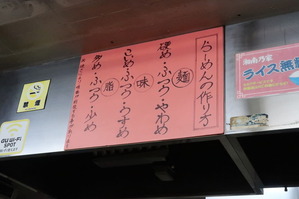 らーめんの作り方
麺
硬め・ふつう・やわめ
味
こいめ・ふつう・うすめ
脂
多め・ふつう・少め
湘乃家
ライス無料
禁煙
au Wi-Fi
SPOT